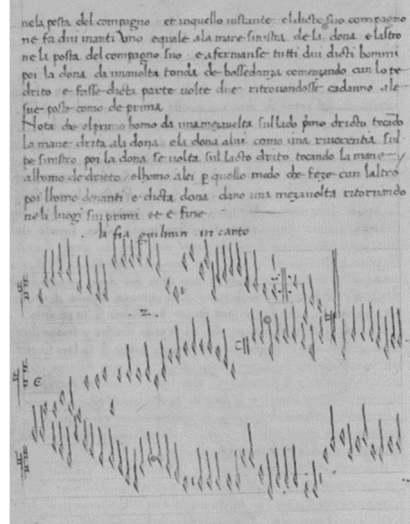 nela posta del compagno et inquello instante el dicto suo compagno
ne fa dui inanti uno equale ala mane sinistra de la dona e laltro
ne la posta del compagno suo e afermanse tutti dui dicti homini
poi la dona da una volta tonda de bassadanza comenzando cun lo pe
drito e fasse dicta parte volte due ritrovandosse cadauno ale
sue poste como de prima
Nota che el primo homo da una meza volta sul lado drieto tocando
la mane drita ala dona ela dona alui como una riverentia sul
pe sinistro poi la dona se volta sul lado drito tocando la mane
alhomo de drieto e lhomo alei p quello modo che feze cun laltro
poi lhomo denanti e dicta dona dano una meza volta ritornando
neli luogi sui primi et e fine
la fia guilmin in canto
.2.